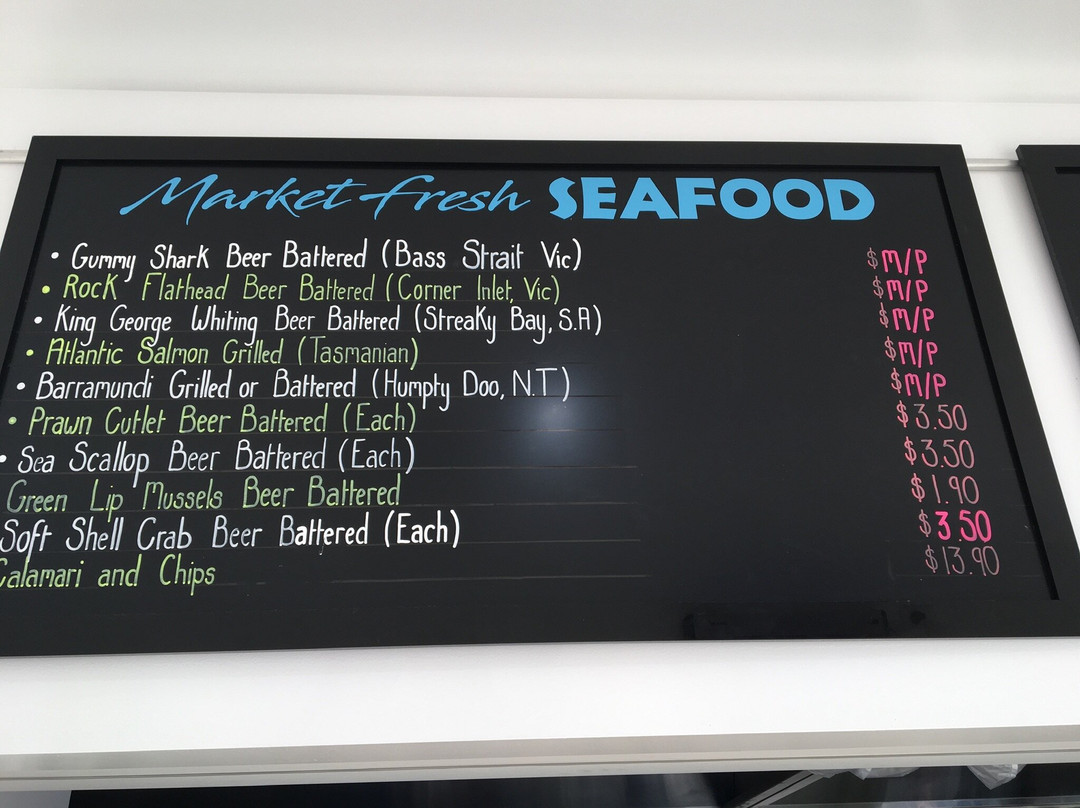 Market fresh SEAFOOD
• Gummy Shark Beer Battered (Bass Strait Vic) $ M/P
• Rock Flathead Beer Battered (Corner Inlet, Vic) $ M/P
• King George Whiting Beer Battered (Streaky Bay, S.A) $ M/P
• Atlantic Salmon Grilled (Tasmanian) $ M/P
• Barramundi Grilled or Battered (Humpty Doo, N.T) $ M/P
• Prawn Cutlet Beer Battered (Each) $3.50
• Sea Scallop Beer Battered (Each) $3.50
Green Lip Mussels Beer Battered $1.90
Soft Shell Crab Beer Battered (Each) $3.50
Calamari and Chips $13.90